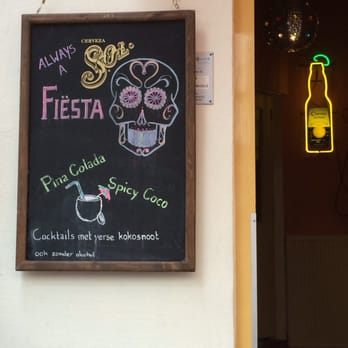 CERVEZA
Sol.
ALWAYS
A
FIËSTA
Pina Colada
Spicy Coco
Cocktails met verse kokosnoot
ook zonder alcohol
Corona